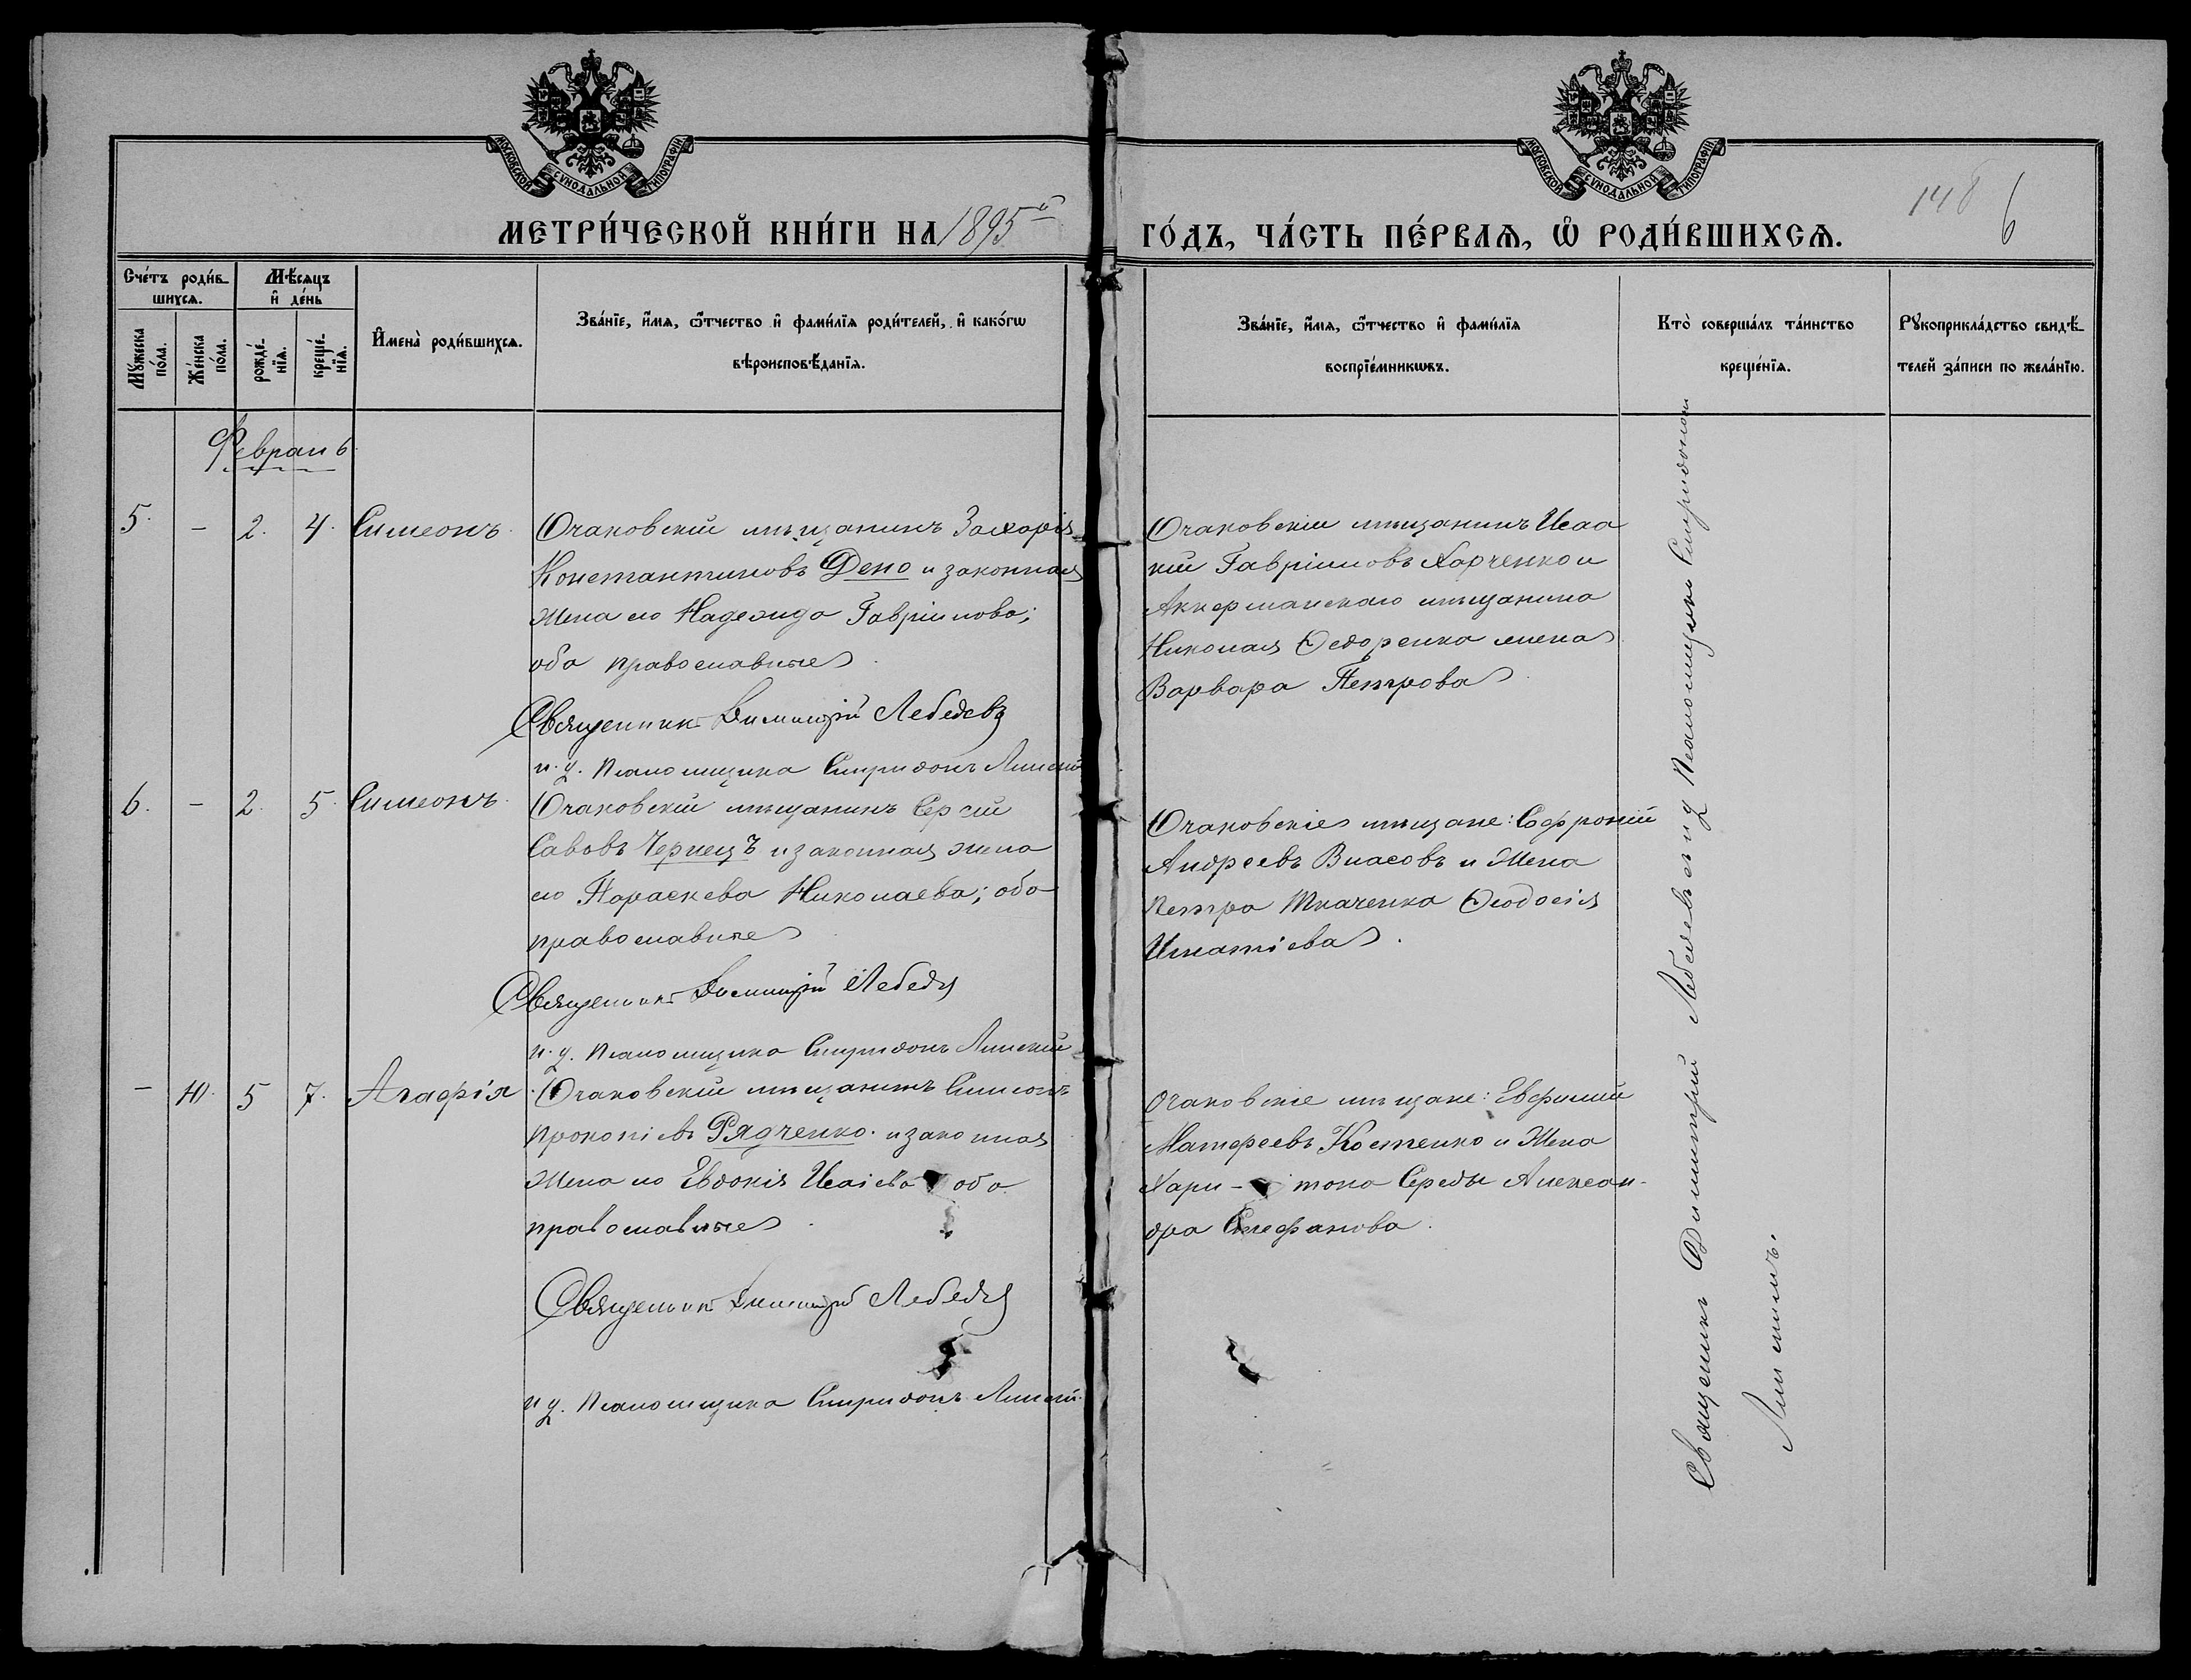 МОСКОВСКОЙ СУНОДАЛЬНОЙ ТИПОГРАФІИ
МОСКОВСКОЙ СУНОДАЛЬНОЙ ТИПОГРАФІИ
148 6
МЕТРИ́ЧЕСКОЙ КНИ́ГИ НА 1895й
ГО́ДЪ, ЧА́СТЬ ПЕ́РВАѦ, Ѽ РОДИ́ВШИХСѦ.
Сче́тъ роди́в-
шихсѧ.
Мꙋ́жеска
по́ла.
Же́нска
по́ла.
Мѣ́сѧцъ
и҆ де́нь
рожде́-
нїѧ.
креще́-
нїѧ.
И҆мена̀ роди́вшихсѧ.
Зва́нїе, и҆́мѧ, ѻ҆́тчество и҆ фами́лїѧ роди́телей, и҆ како́гѡ
вѣроисповѣ́данїѧ.
Зва́нїе, и҆́мѧ, ѻ҆́тчество и҆ фами́лїѧ
воспрїе́мникѡвъ.
Кто̀ соверша́лъ та́инство
креще́нїѧ.
Рꙋкоприкла́дство свидѣ́-
телей за́писи по жела́нїю.
Февраль
5. - 2. 4. Симеонъ.
Очаковскій мѣщанинъ Захарія
Константиновъ Дено и законная
жена его Надежда Гавріилова;
оба православные
Священникъ Димитрій Лебедевъ
и. д. псаломщика Спиридонъ
Очаковскій мѣщанинъ Исаа
кій Гавріиловъ Харченко и
Аккерманскаго мѣщанина
Николая Ѳедоренка жена
Варвара Петрова
6. - 2. 5. Симеонъ.
Очаковскій мѣщанинъ Сергій
Савовъ Чернецъ и законная жена
его Параскева Николаева; оба
православные
Священникъ Димитрій Лебедевъ
и. д. псаломщика Спиридонъ
Очаковскіе мѣщане: Софроній
Андреевъ Власовъ и жена
Петра Ткаченка Ѳеодосія
Игнатіева.
- 10. 5 7. Агафія
Очаковскій мѣщанинъ Симеонъ
Прокопіевъ Рядченко. и законная
жена его Евдокія Исаіева оба
православные
Священникъ Димитрій Лебедевъ
и д. псаломщика Спиридонъ
Очаковскіе мѣщане: Евфимій
Матфеевъ Костенко и жена
Хари- тона Середы Алексан-
дра Стефанова.
Священникъ Димитрій Лебедевъ съ и д псаломщика Спиридономъ